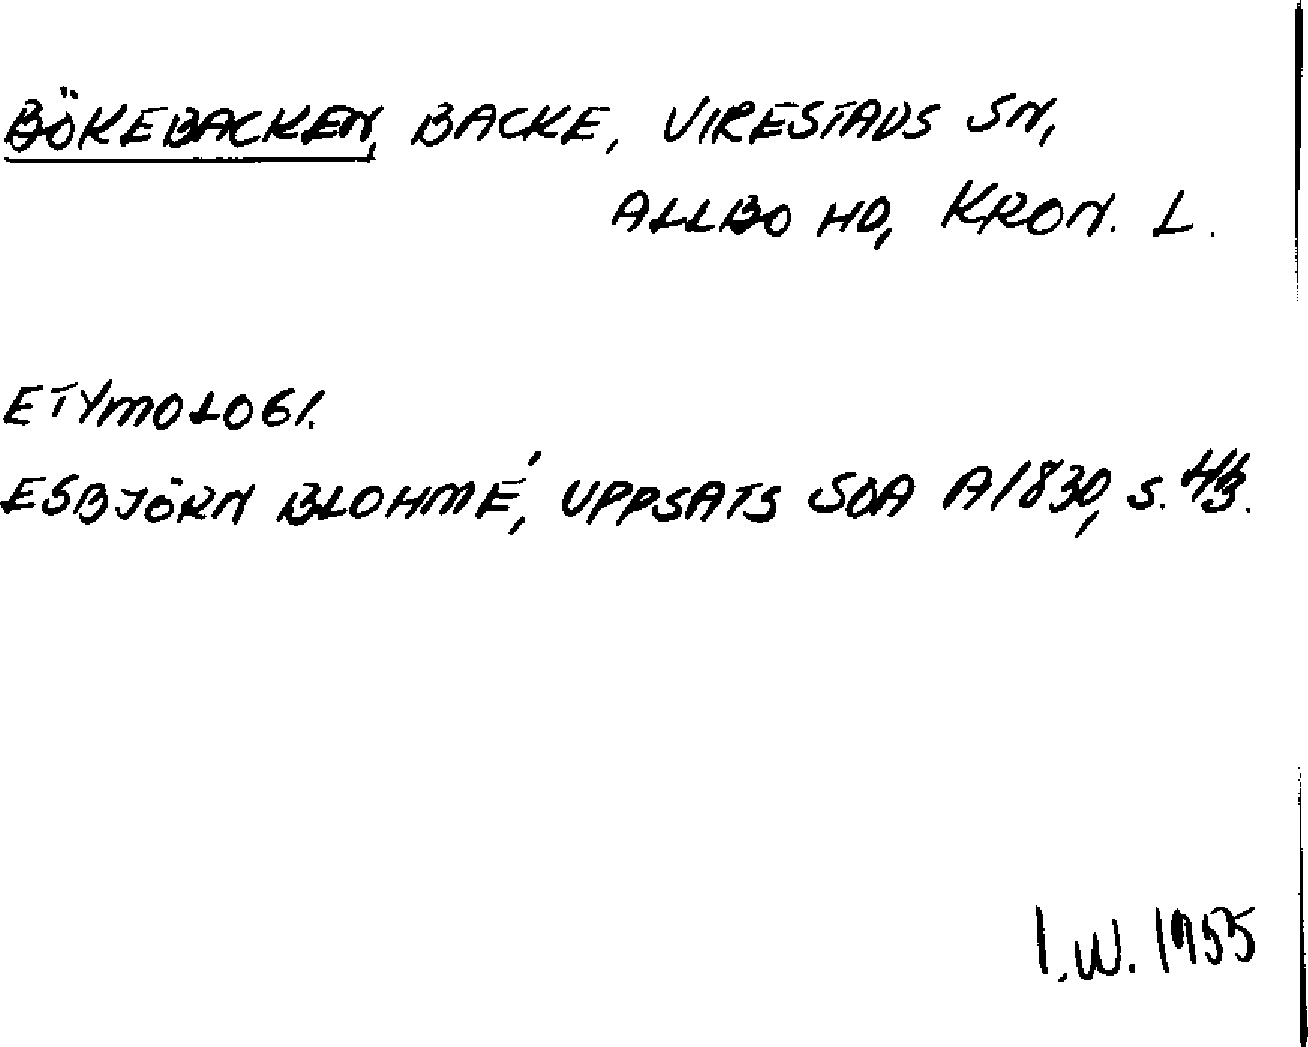 BÖKEBACKEN, BACKE, VIRESTADS SN,
ALLBO HD, KRON. L.
ETYMOLOGI.
ESBJÖRN BLOHMÉ, UPPSATS SOA A1830, S. 43.
I.W. 1955